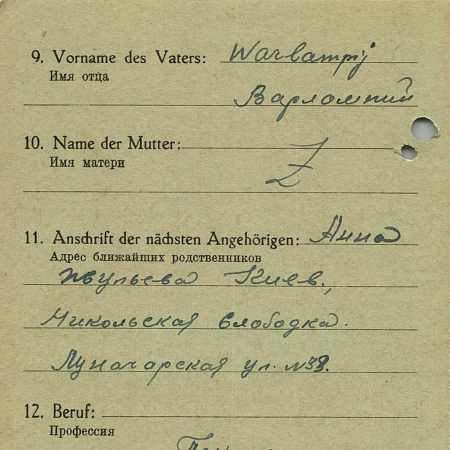 9. Vorname des Vaters: Warlampij
Имя отца
Варлампий
10. Name der Mutter: Z
Имя матери
11. Anschrift der nächsten Angehörigen: Анна
Адрес ближайших родственников
Киев,
Никольская слободка.
Луначарская ул. №38.
12. Beruf:
Профессия